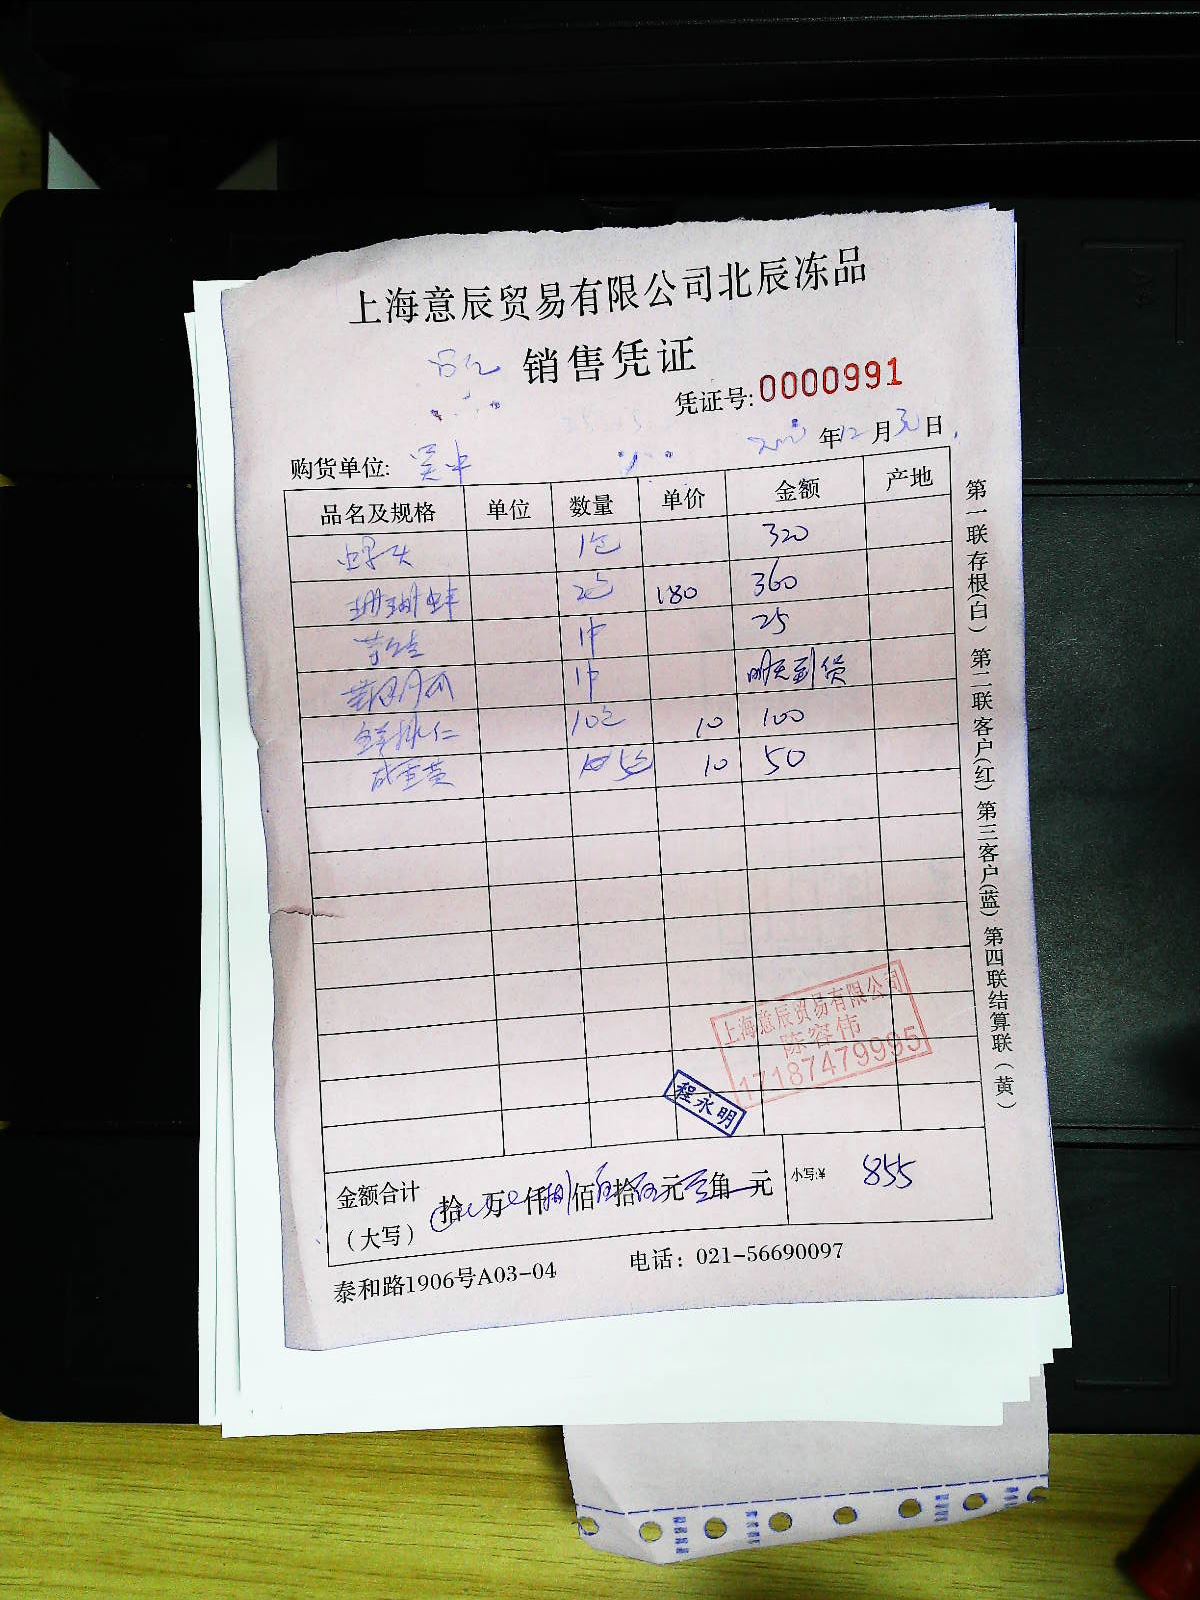 上海意辰贸易有限公司北辰冻品
销售凭证
凭证号:0000991
年12月30日
购货单位:
品名及规格 单位 数量 单价 金额 产地
1包 320
珊瑚蚌 2包 180 360
1件 25
1件 明天到货
10包 10 100
咸蛋黄 5包 10 50
第一联存根(白) 第二联客户(红) 第三客户(蓝) 第四联结算联(黄)
上海意辰贸易有限公司
陈容伟
17187479995
程永明
金额合计
(大写) 拾 万 仟捌佰伍拾伍元 角 元 小写:¥ 855
泰和路1906号A03-04 电话：021-56690097